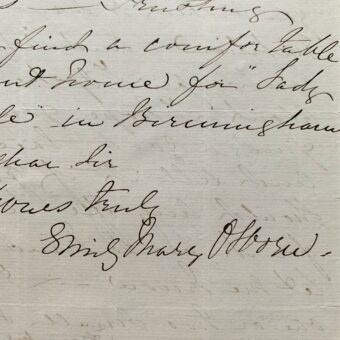 Trusting
find a comfortable
home for "Lady
" in Birmingham
Dear Sir
Yours truly
Emily Mary Osborn.